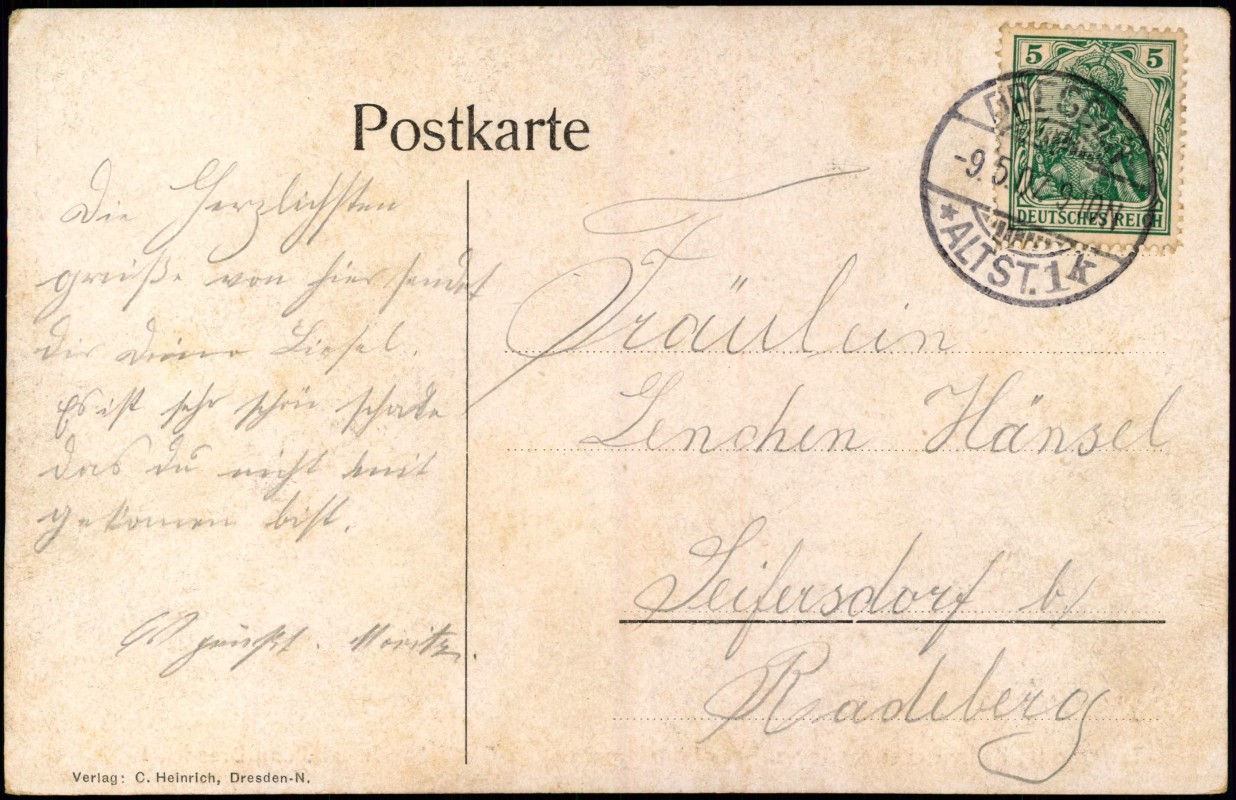 Postkarte
5 5
DEUTSCHES REICH
-9.5.07. 9-10N
*ALTST. 1 k
Die Herzlichsten
grüße von hier sendet
dir Deine Liesel.
Es ist sehr schön schade
das du nicht mit
gekomen bist.
Moritz.
Fräulein
Lenchen Hänsel
Seifersdorf b/
Radeberg
Verlag: C. Heinrich, Dresden-N.